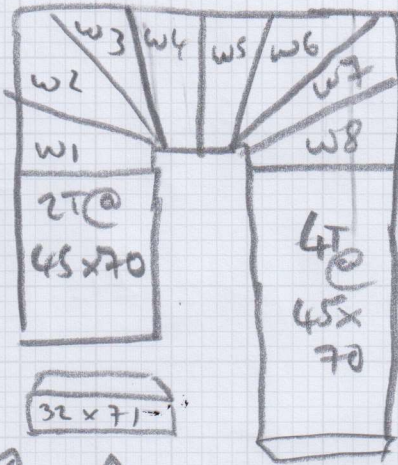 w1
w2
w3
w4
w5
w6
w7
w8
2T@
45x70
4T
@
45x
70
32 x 71